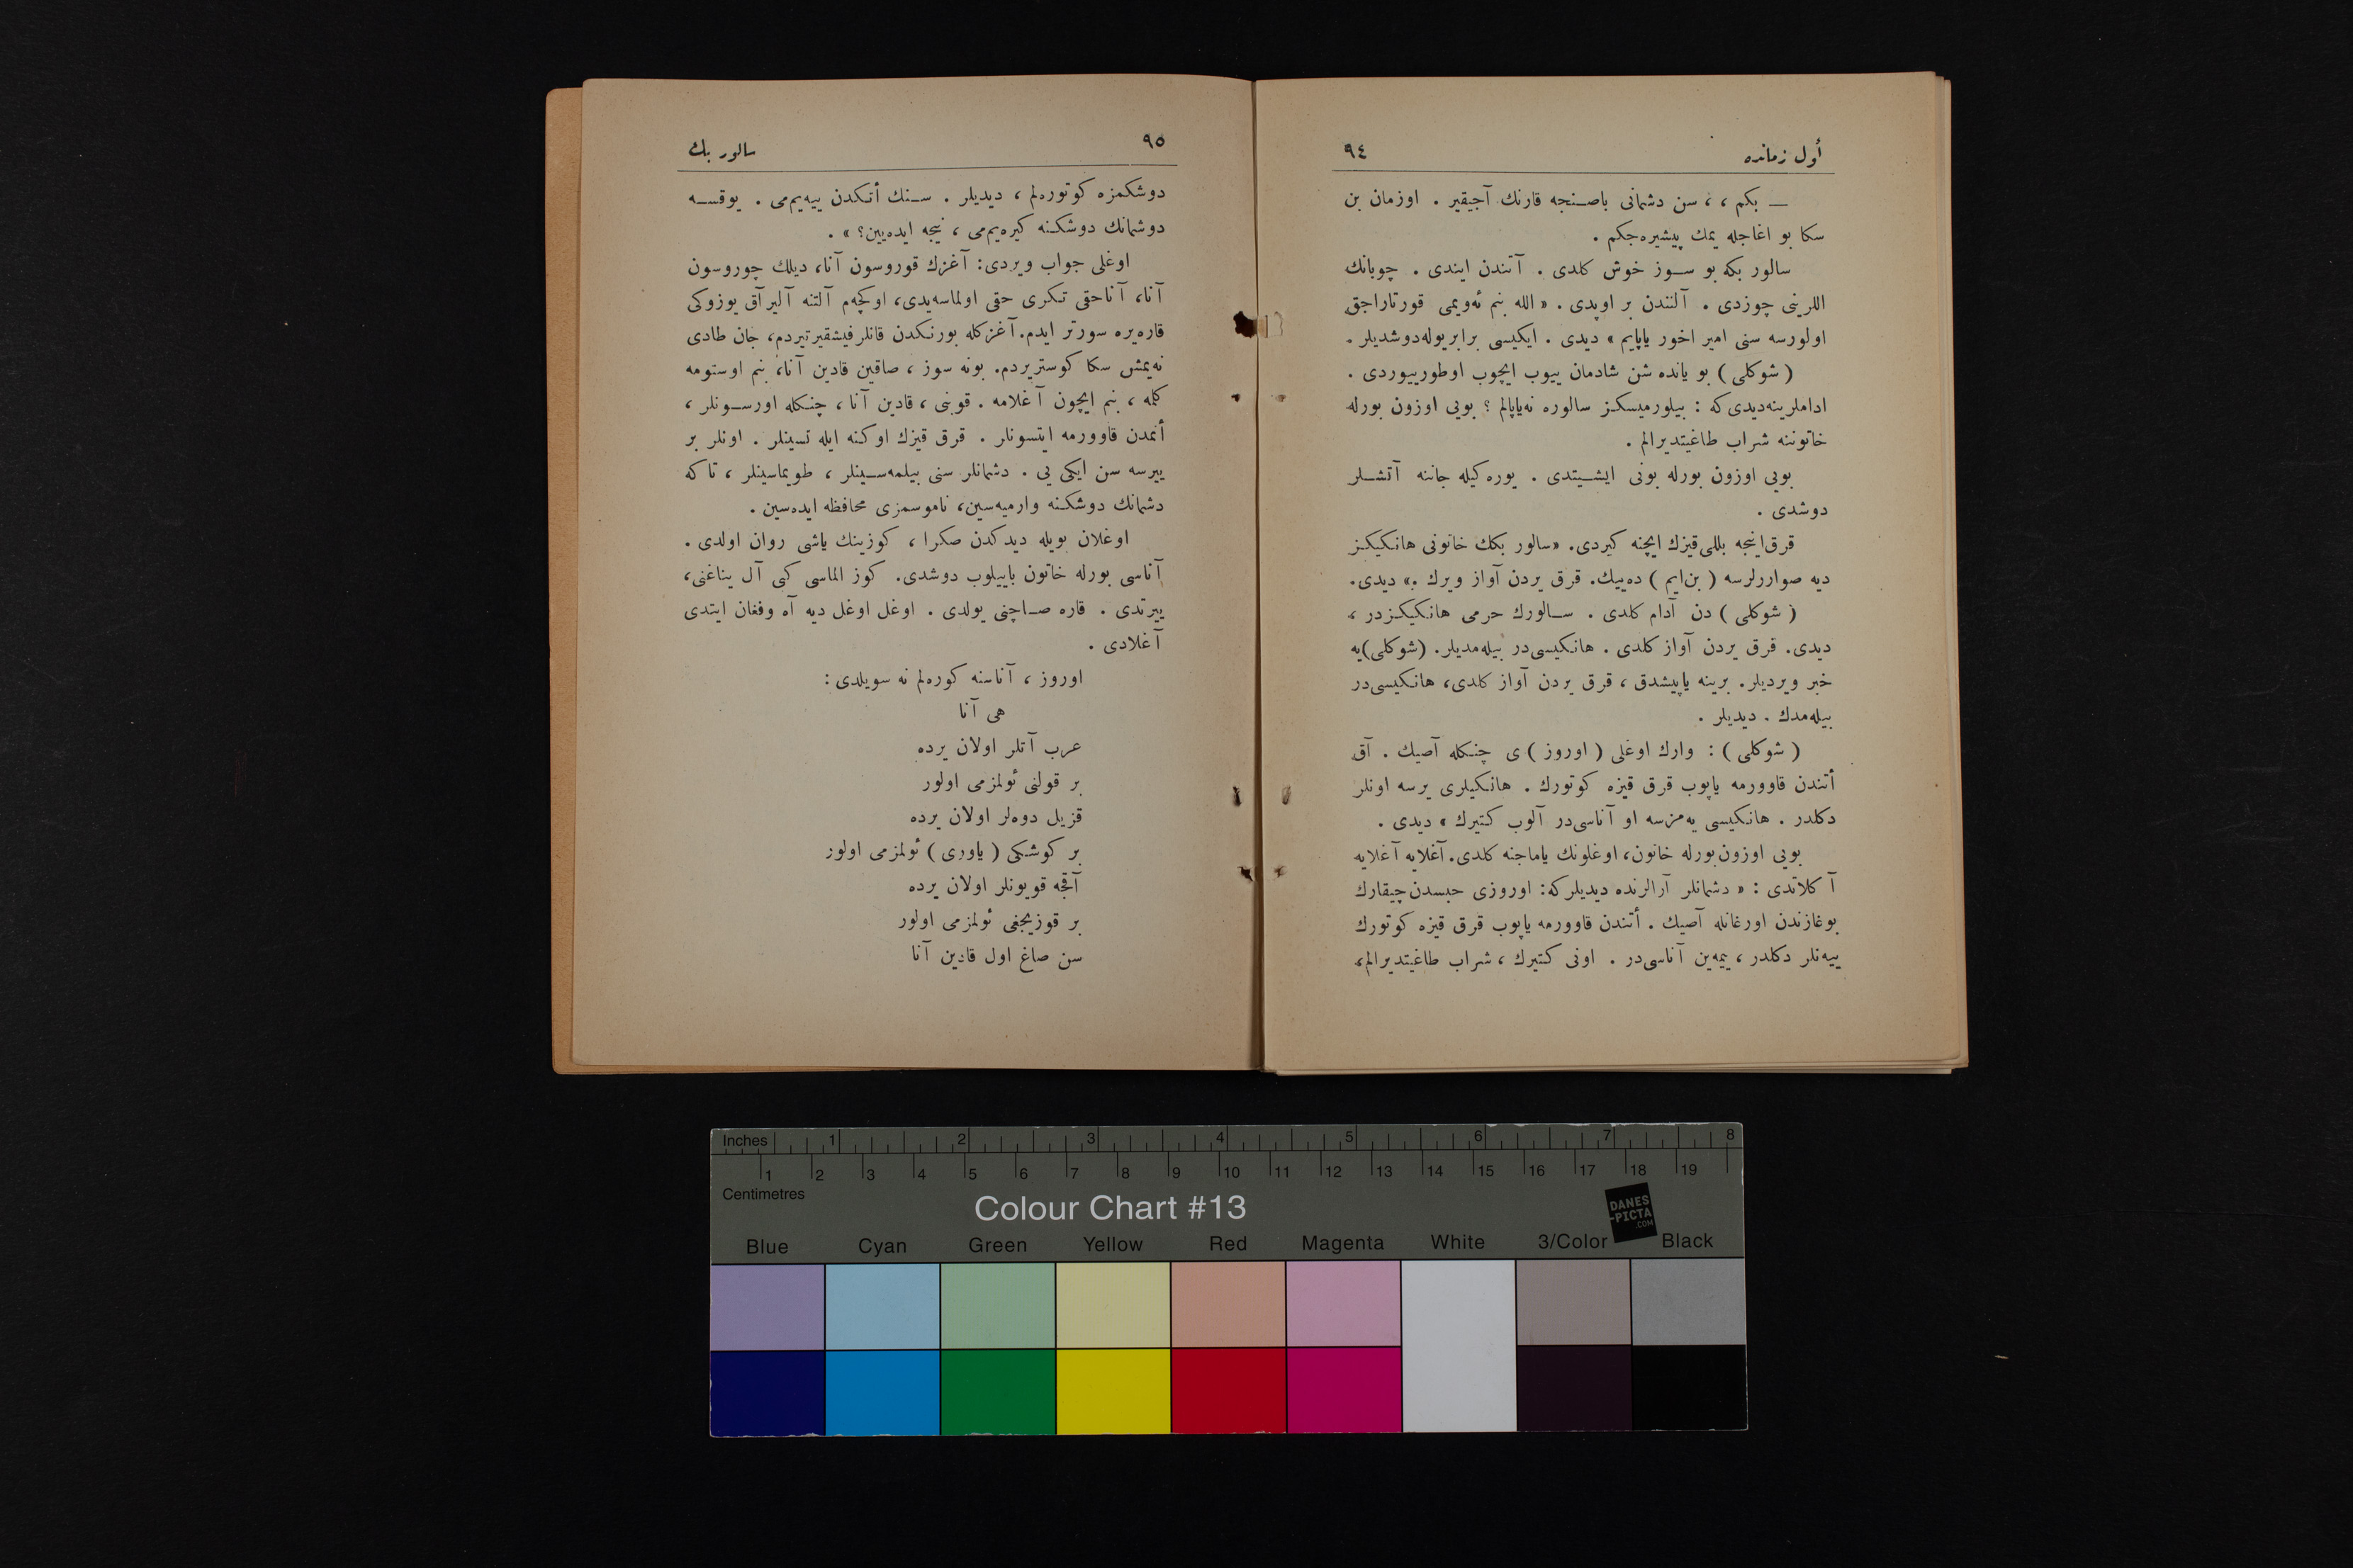 أول زمانده
٩٤
— بكم ، ، سن دشمانى باصـنجه قارنك آجيقير . اوزمان بن
سكا بو اغاجله يمك پيشيره جكم .
سالور بكه بو سـوز خوش كلدى . آتندن ايندى . چوبانك
اللرينى چوزدى . آلنندن بر اوپدى . « الله بنم ئه ويمى قورتاراجق
اولورسه سنى امير اخور ياپايم » ديدى . ايكيسى برابر يوله دوشديلر .
( شوكلى ) بو يانده شن شادمان ييوب ايچوب اوطورييوردى .
اداملرينه ديدى كه : بيلورميسكز سالوره نه ياپالم ؟ بويى اوزون بورله
خاتوننه شراب طاغيتديرالم .
بويى اوزون بورله بونى ايشـيتدى . يوره كيله جاننه آتشـلر
دوشدى .
قرق اينجه بللى قيزك ايچنه كيردى. «سالور بكك خاتونى هانكيكز
ديه صوارلرسه ( بن ايم ) ده ييك. قرق يردن آواز ويرك .» ديدى.
( شوكلى ) دن آدام كلدى . سـالورك حرمى هانكيكزدر ،
ديدى. قرق يردن آواز كلدى . هانكيسى در بيله مديلر. (شوكلى)يه
خبر ويرديلر. برينه ياپيشدق ، قرق يردن آواز كلدى، هانكيسى در
بيله مدك . ديديلر .
( شوكلى ) : وارك اوغلى ( اوروز ) ى چنكله آصيك . آق
أتندن قاوورمه ياپوب قرق قيزه كوتورك . هانكيلرى يرسه اونلر
دكلدر . هانكيسى يه مزسه او آناسى در آلوب كتيرك » ديدى .
بويى اوزون بورله خاتون، اوغلونك ياماجنه كلدى. آغلايه آغلايه
آ كلاتدى : « دشمانلر آرالرنده ديديلركه: اوروزى حبسدن چيقارك
بوغازندن اورغانله آصيك . أتندن قاوورمه ياپوب قرق قيزه كوتورك
ييه نلر دكلدر ، ييمه ين آناسى در . اونى كتيرك ، شراب طاغيتديرالم،
٩٥
سالور بك
دوشكمزه كوتوره لم ، ديديلر . سـنك أتكدن ييه يم مى . يوقسـه
دوشمانك دوشكنه كيره يم مى ، نيجه ايده يين؟ » .
اوغلى جواب ويردى: آغزك قوروسون آنا، ديلك چوروسون
آنا، آنا حقى تكرى حقى اولماسه يدى، اوكچه م آلتنه آلير آق يوزوكى
قاره يره سورتر ايدم. آغزكله بورنكدن قانلر فيشقيرتيردم، جان طادى
نه يمش سكا كوستريردم. بونه سوز ، صاقين قادين آنا، بنم اوستومه
كلمه ، بنم ايچون آغلامه . قوبنى ، قادين آنا ، چنكله اورسـونلر ،
أتمدن قاوورمه ايتسونلر . قرق قيزك اوكنه ايله تسينلر . اونلر بر
ييرسه سن ايكى يى . دشمانلر سنى بيلمه سـينلر ، طويماسينلر ، تاكه
دشمانك دوشكنه وارميه سين، ناموسمزى محافظه ايده سين .
اوغلان بويله ديدكدن صكرا ، كوزينك ياشى روان اولدى .
آناسى بورله خاتون باييلوب دوشدى. كوز الماسى كبى آل يناغنى،
ييرتدى . قاره صـاچنى يولدى . اوغل اوغل ديه آه وفغان ايتدى
آغلادى .
اوروز ، آناسنه كوره لم نه سويلدى :
هى آنا
عرب آتلر اولان يرده
بر قولنى ئولمزمى اولور
قزيل دوه لر اولان يرده
بر كوشكى ( ياورى ) ئولمزمى اولور
آقجه قويونلر اولان يرده
بر قوزيجغى ئولمزمى اولور
سن صاغ اول قادين آنا
Inches 1 2 3 4 5 6 7 8
1 2 3 4 5 6 7 8 9 10 11 12 13 14 15 16 17 18 19
Centimetres
Colour Chart #13
DANES
-PICTA
.COM
Blue Cyan Green Yellow Red Magenta White 3/Color Black